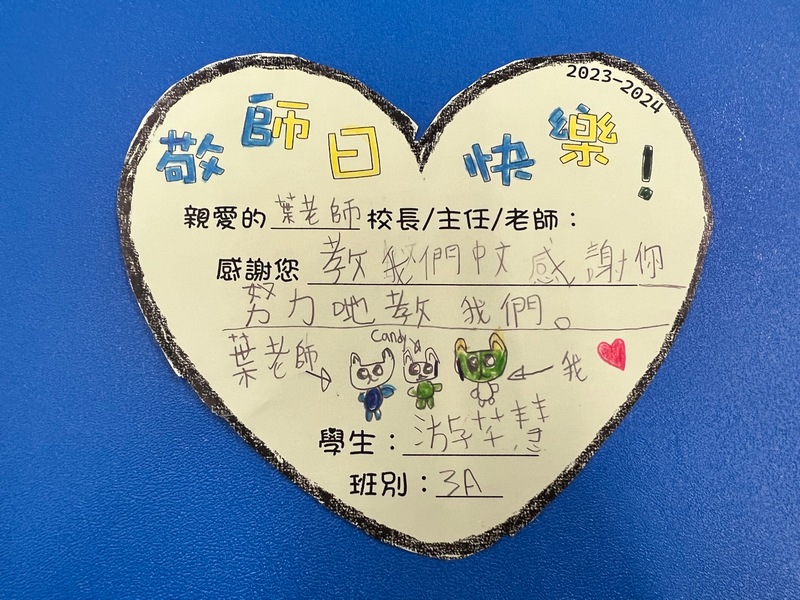 2023-2024
敬師日 快樂！
親愛的 葉老師 校長/主任/老師：
感謝您 教我們中文感謝你
努力吔教 我們。
Candy
葉老師 我
學生： 慧
班別：3A